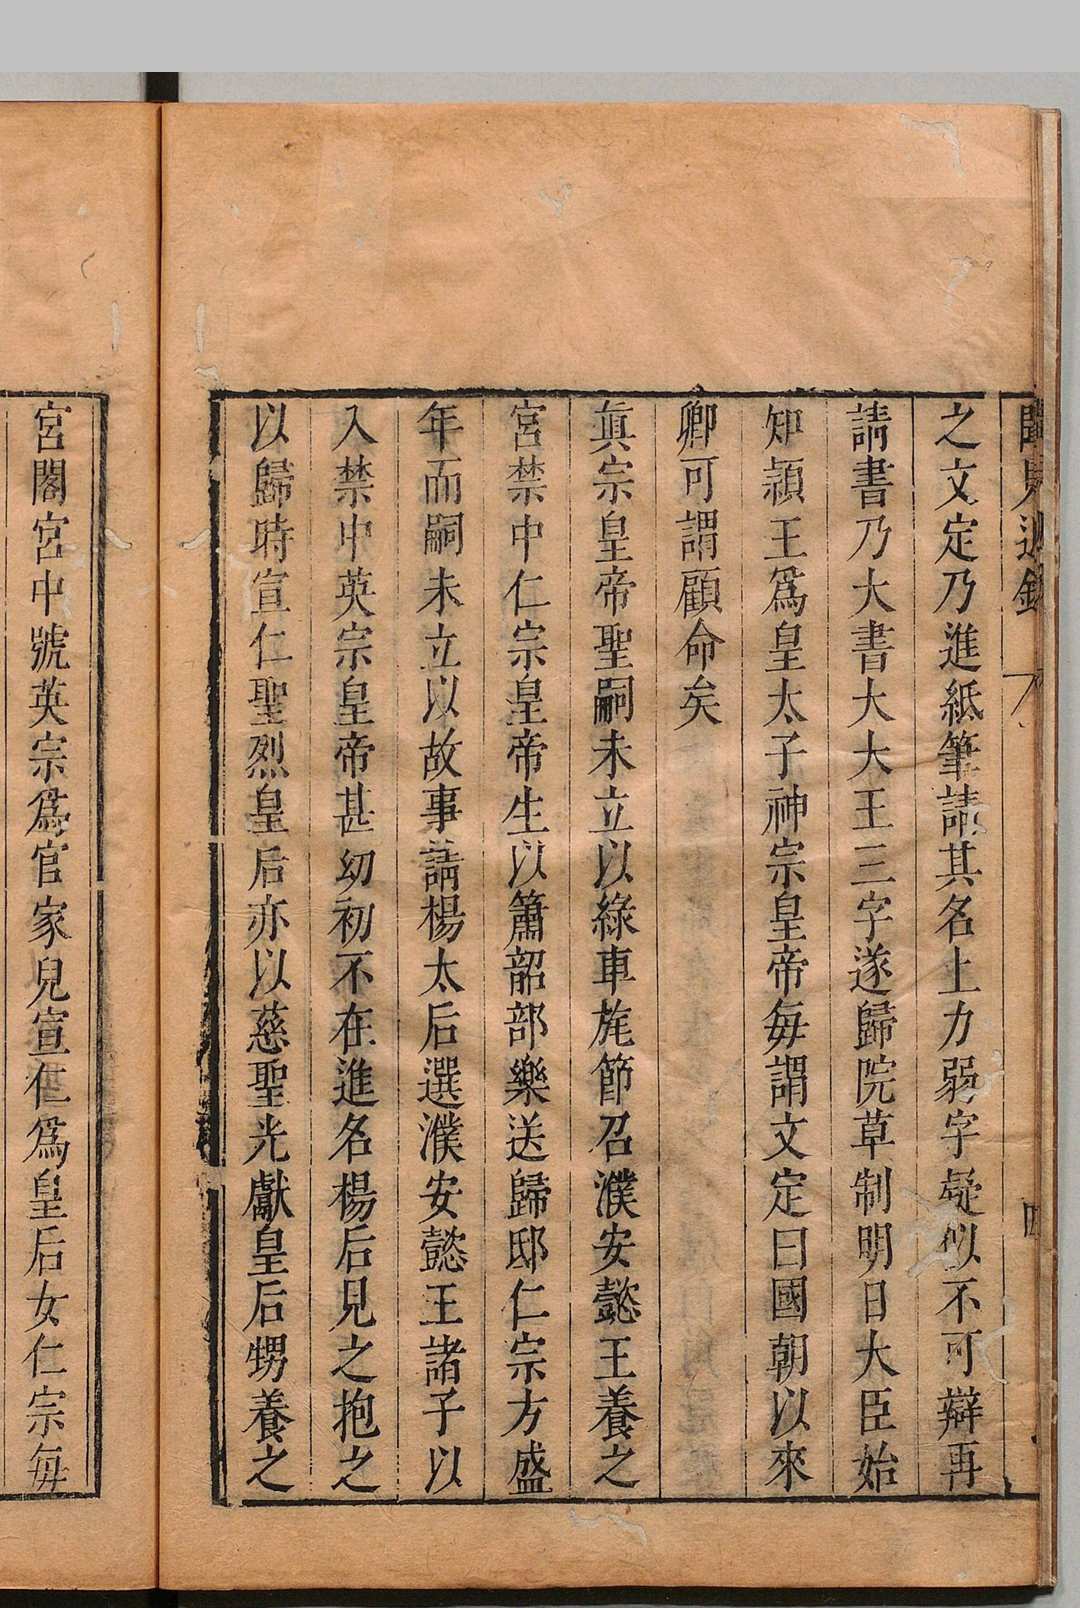 聞見近錄
四
之文定乃進紙筆請其名上力弱字疑似不可辯再
請書乃大書大大王三字遂歸院草制明日大臣始
知頴王爲皇太子神宗皇帝每謂文定曰國朝以來
卿可謂顧命矣
眞宗皇帝聖嗣未立以綠車旄節召濮安懿王養之
宮禁中仁宗皇帝生以簫韶部樂送歸邸仁宗方盛
年而嗣未立以故事請楊太后選濮安懿王諸子以
入禁中英宗皇帝甚幼初不在進名楊后見之抱之
以歸時宣仁聖烈皇后亦以慈聖光獻皇后甥養之
宮閣宮中號英宗爲官家兒宣仁爲皇后女仁宗每